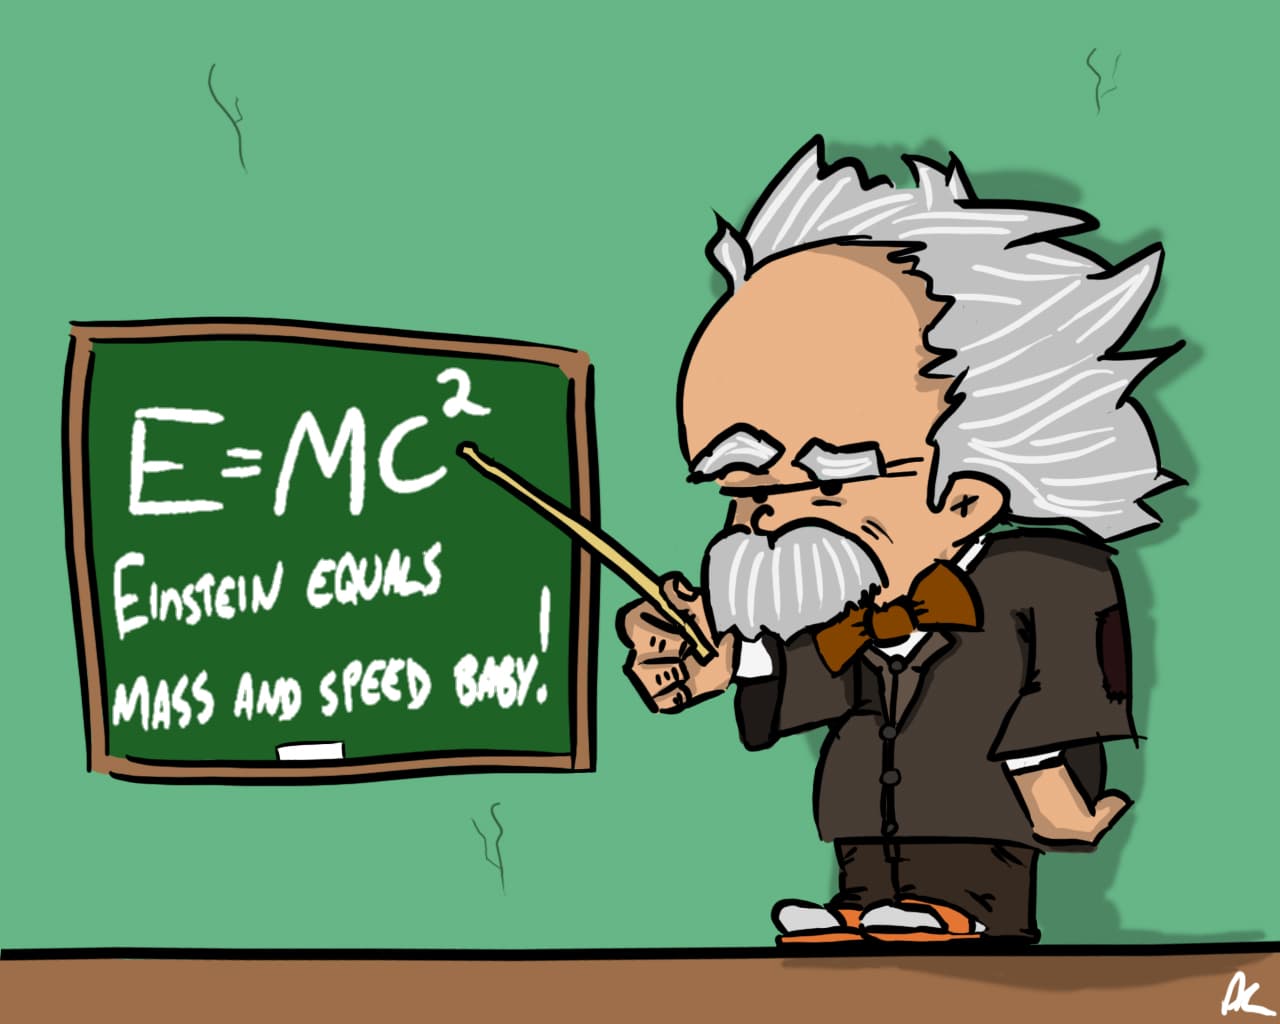 E=MC²
EINSTEIN EQUALS
MASS AND SPEED BABY!
AK